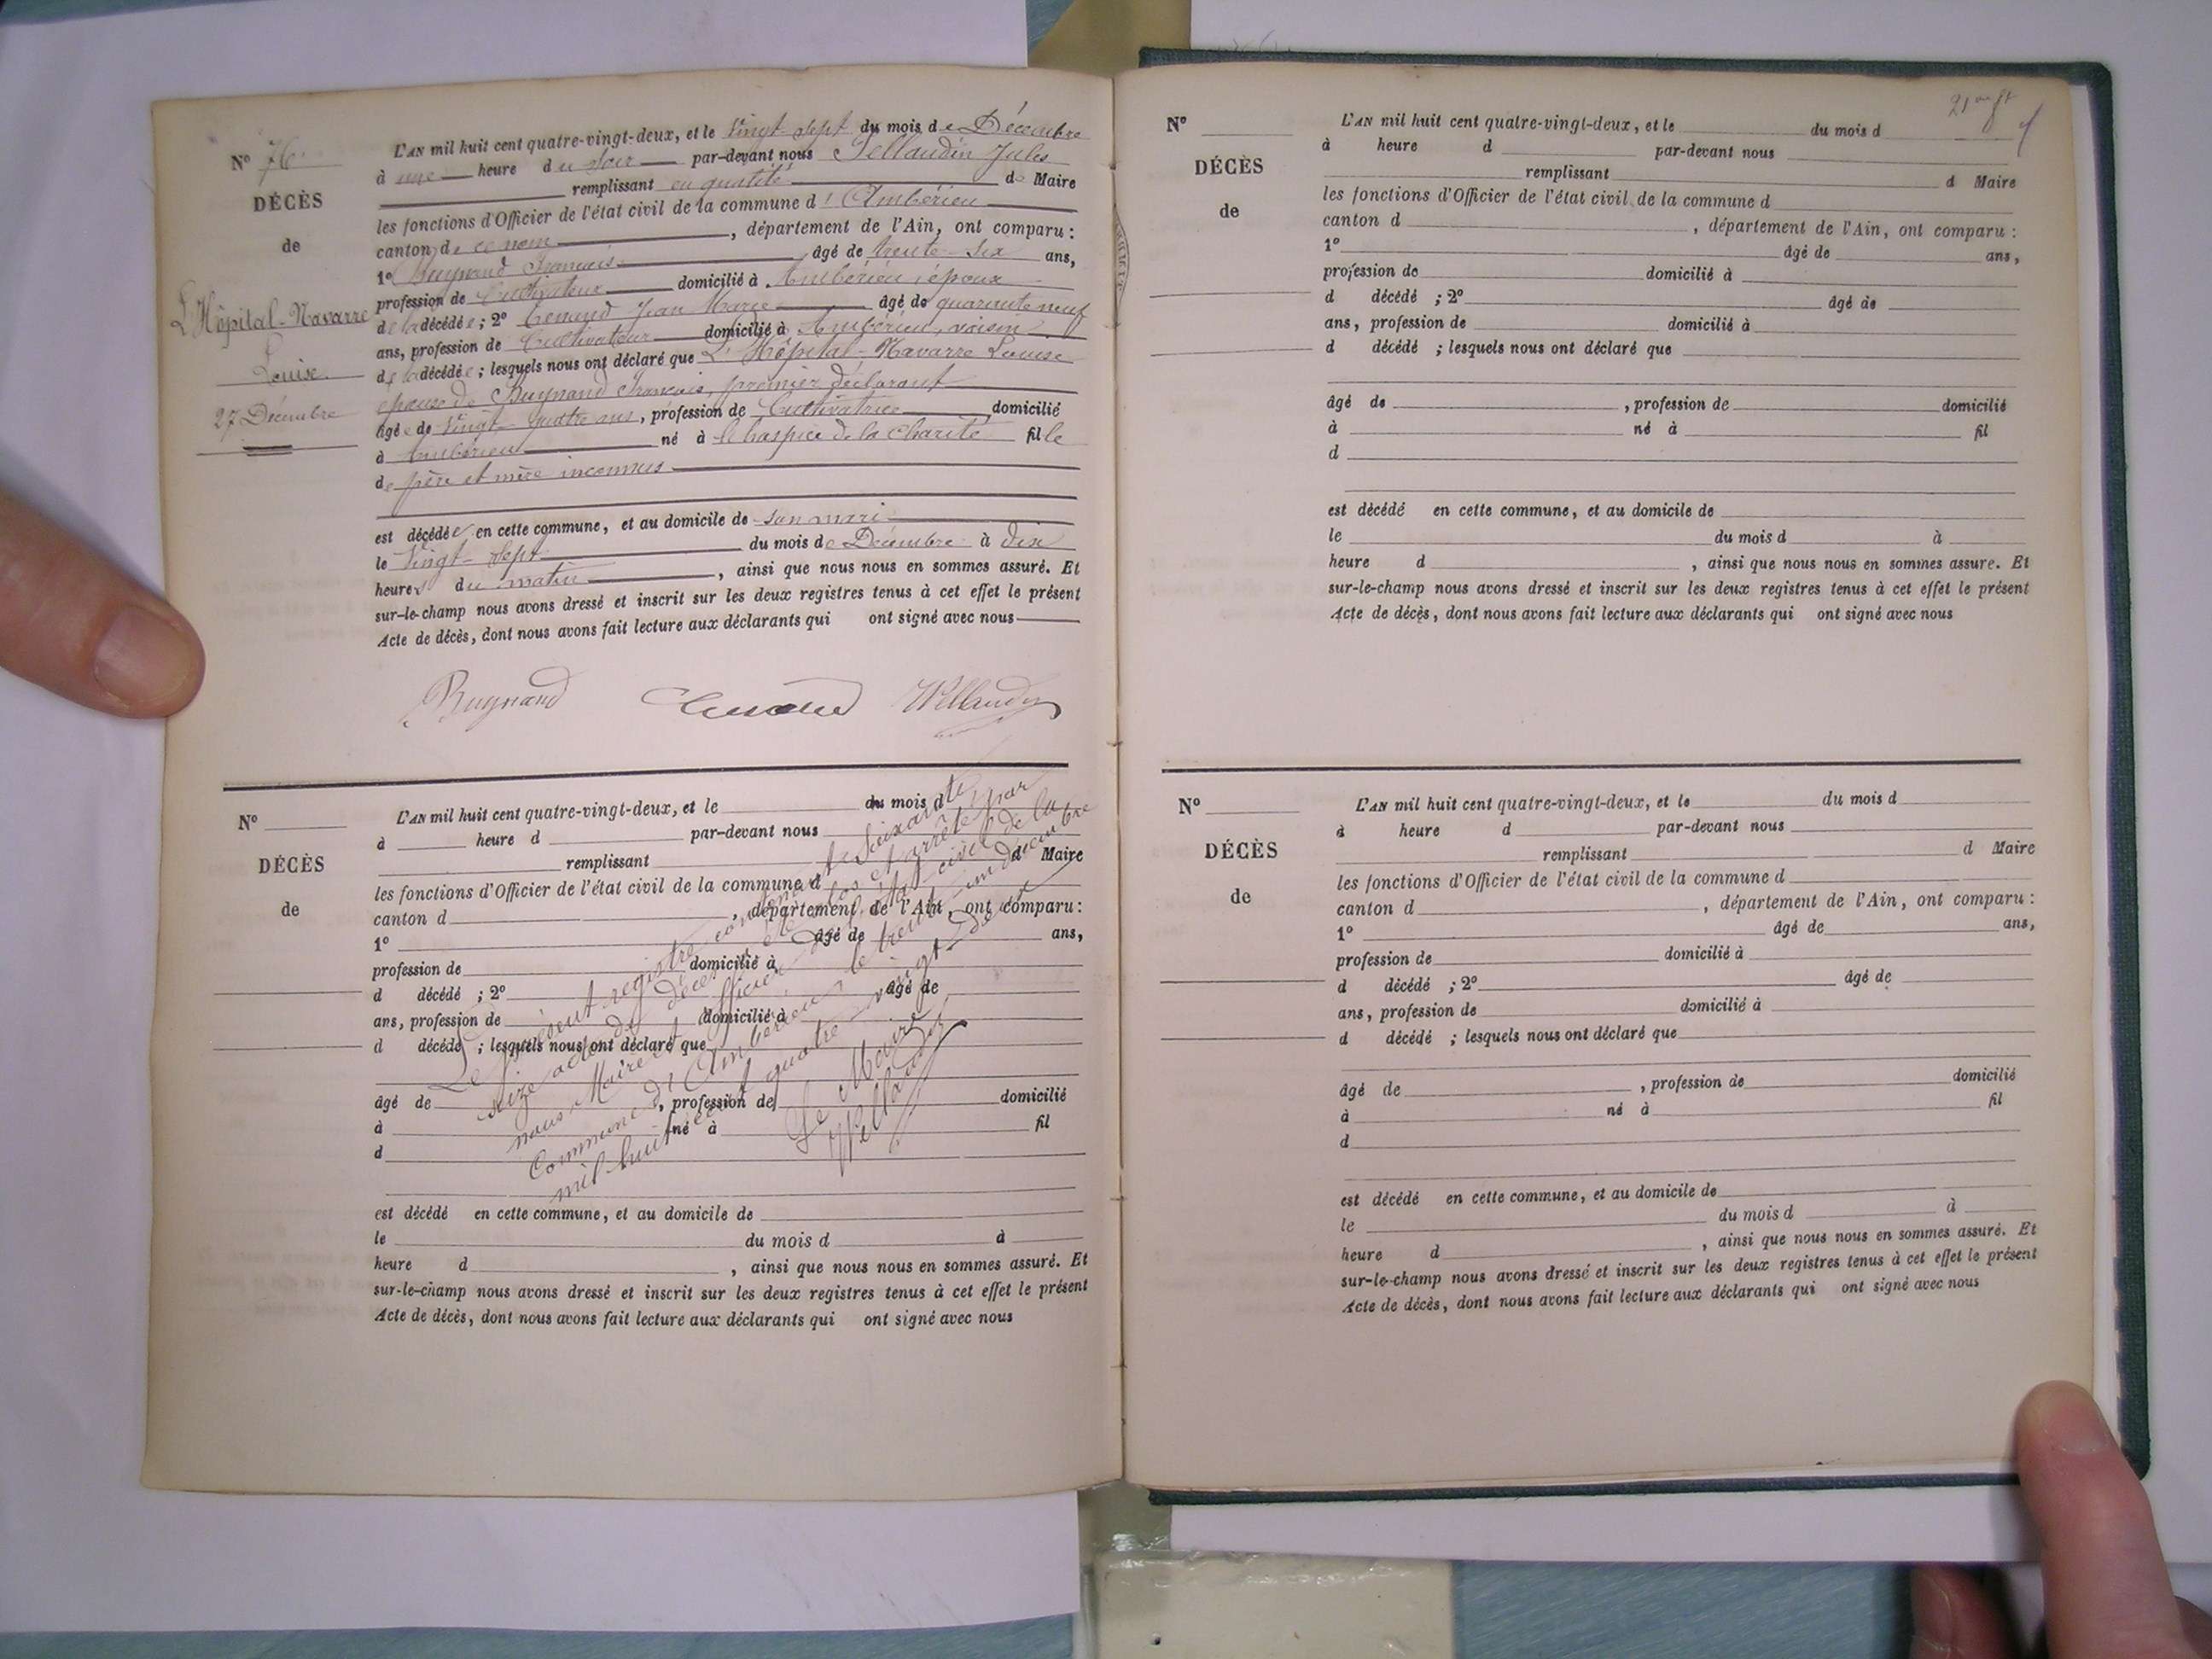 N° 76
DÉCÈS
de
L'Hôpital-Navarre
Louise
27 Décembre
L'AN mil huit cent quatre-vingt-deux, et le Vingt-sept du mois de Décembre
à une heure du soir par-devant nous Pellaudin Jules
remplissant en qualité de Maire
les fonctions d'Officier de l'état civil de la commune d'Ambérieu
canton de ce nom, département de l'Ain, ont comparu :
1° Buynand François âgé de trente-six ans,
profession de Cultivateur domicilié à Ambérieu, époux
de la décédée ; 2° Jean Marie âgé de quarante neuf
ans, profession de Cultivateur domicilié à Ambérieu, voisin
de la décédée ; lesquels nous ont déclaré que L'Hôpital-Navarre Louise
épouse de Buynand François, premier déclarant
âgée de Vingt-quatre ans, profession de Cultivatrice domicilié
à Ambérieu né à l'hospice de la Charité fille
de père et mère inconnus
est décédée en cette commune, et au domicile de son mari
le Vingt-sept du mois de Décembre à dix
heures du matin, ainsi que nous nous en sommes assuré. Et
sur-le-champ nous avons dressé et inscrit sur les deux registres tenus à cet effet le présent
Acte de décès, dont nous avons fait lecture aux déclarants qui ont signé avec nous
Buynand Pellaudin
N°
DÉCÈS
de
L'AN mil huit cent quatre-vingt-deux, et le du mois d
à heure d par-devant nous
remplissant d Maire
les fonctions d'Officier de l'état civil de la commune d
canton d , département de l'Ain, ont comparu :
1° âgé de ans,
profession de domicilié à
d décédé ; 2° âgé de
ans, profession de domicilié à
d décédé ; lesquels nous ont déclaré que
âgé de , profession de domicilié
à né à fil
d
est décédé en cette commune, et au domicile de
le du mois d à
heure d , ainsi que nous nous en sommes assuré. Et
sur-le-champ nous avons dressé et inscrit sur les deux registres tenus à cet effet le présent
Acte de décès, dont nous avons fait lecture aux déclarants qui ont signé avec nous
Le présent registre contenant soixante
seize actes de décès a été clos et arrêté par
nous Maire et officier de l'état civil de la
Commune d'Ambérieu le trente un décembre
mil huit cent quatre vingt deux
Le Maire
Pellaudin
21
N°
DÉCÈS
de
L'AN mil huit cent quatre-vingt-deux, et le du mois d
à heure d par-devant nous
remplissant d Maire
les fonctions d'Officier de l'état civil de la commune d
canton d , département de l'Ain, ont comparu :
1° âgé de ans,
profession de domicilié à
d décédé ; 2° âgé de
ans, profession de domicilié à
d décédé ; lesquels nous ont déclaré que
âgé de , profession de domicilié
à né à fil
d
est décédé en cette commune, et au domicile de
le du mois d à
heure d , ainsi que nous nous en sommes assuré. Et
sur-le-champ nous avons dressé et inscrit sur les deux registres tenus à cet effet le présent
Acte de décès, dont nous avons fait lecture aux déclarants qui ont signé avec nous
N°
DÉCÈS
de
L'AN mil huit cent quatre-vingt-deux, et le du mois d
à heure d par-devant nous
remplissant d Maire
les fonctions d'Officier de l'état civil de la commune d
canton d , département de l'Ain, ont comparu :
1° âgé de ans,
profession de domicilié à
d décédé ; 2° âgé de
ans, profession de domicilié à
d décédé ; lesquels nous ont déclaré que
âgé de , profession de domicilié
à né à fil
d
est décédé en cette commune, et au domicile de
le du mois d à
heure d , ainsi que nous nous en sommes assuré. Et
sur-le-champ nous avons dressé et inscrit sur les deux registres tenus à cet effet le présent
Acte de décès, dont nous avons fait lecture aux déclarants qui ont signé avec nous